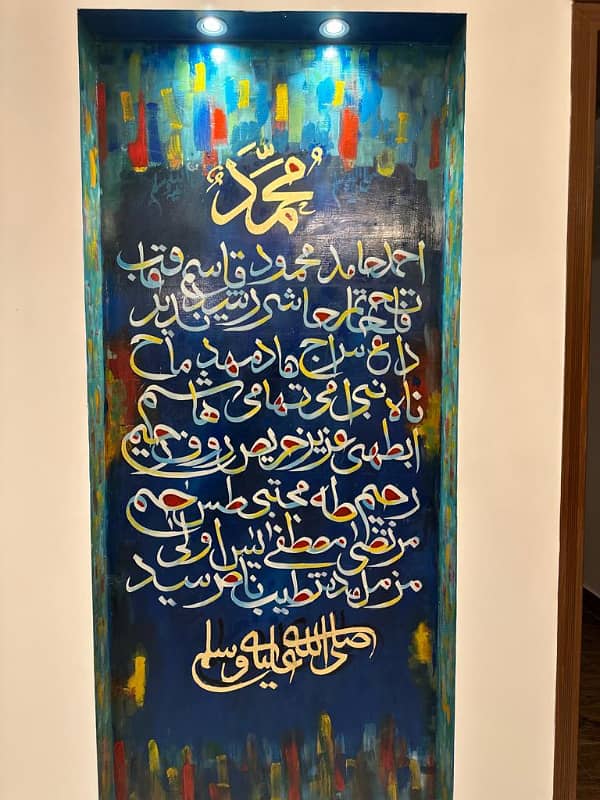 مُحَمَّدٌ
احمد حامد محمود قاسم عاقب
فاتح خاتم حاشر رشید نذیر
داع سراج هاد مهد ماح
ناه نبی امی تهامی هاشم
ابطهی عزیز حریص رووف
رحیم طه مجتبی طس حم
مرتضی مصطفی یٰس اولیٰ
مزمل مدثر طیب ناصر سید
صلی الله علیه وسلم